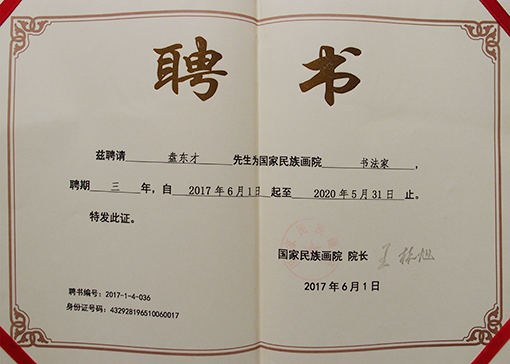 聘书
兹聘请 盘东才 先生为国家民族画院 书法家 ，
聘期 三 年，自 2017年6月1日 起至 2020年5月31日 止。
特发此证。
国家民族画院 院长
2017年6月1日
聘书编号：2017-1-4-036
身份证号码：432928196510060017